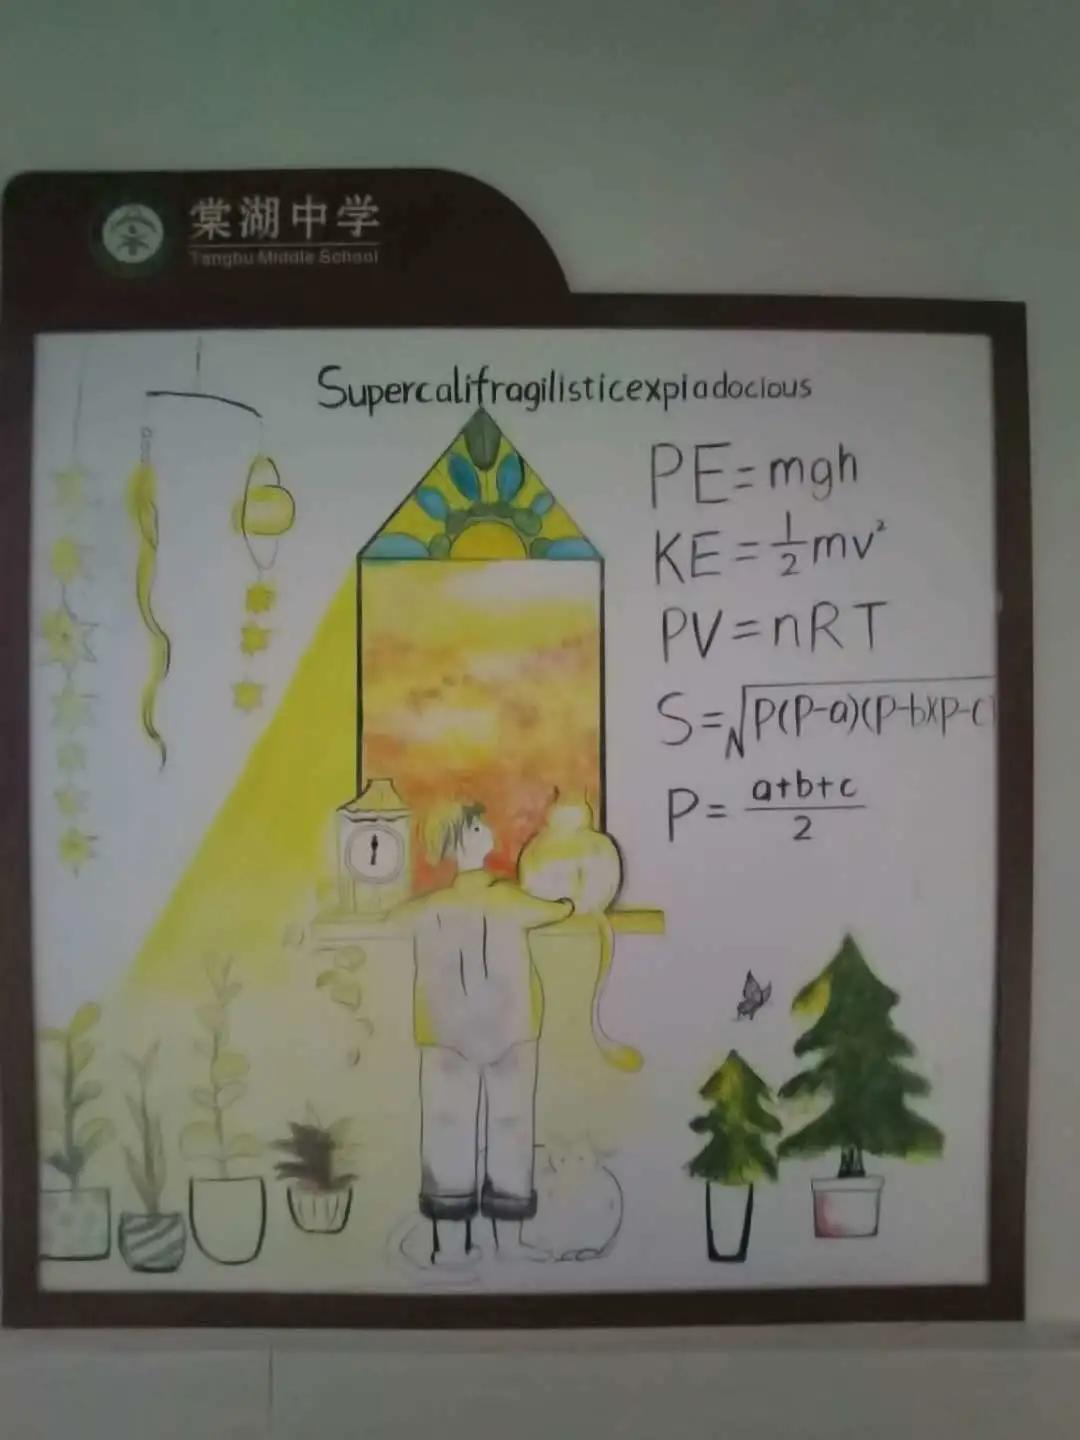 棠湖中学
Tanghu Middle School
Supercalifragilisticexpiadocious
PE=mgh
KE=½mv²
PV=nRT
S=√P(P-a)(P-b)(P-c)
P=a+b+c/2